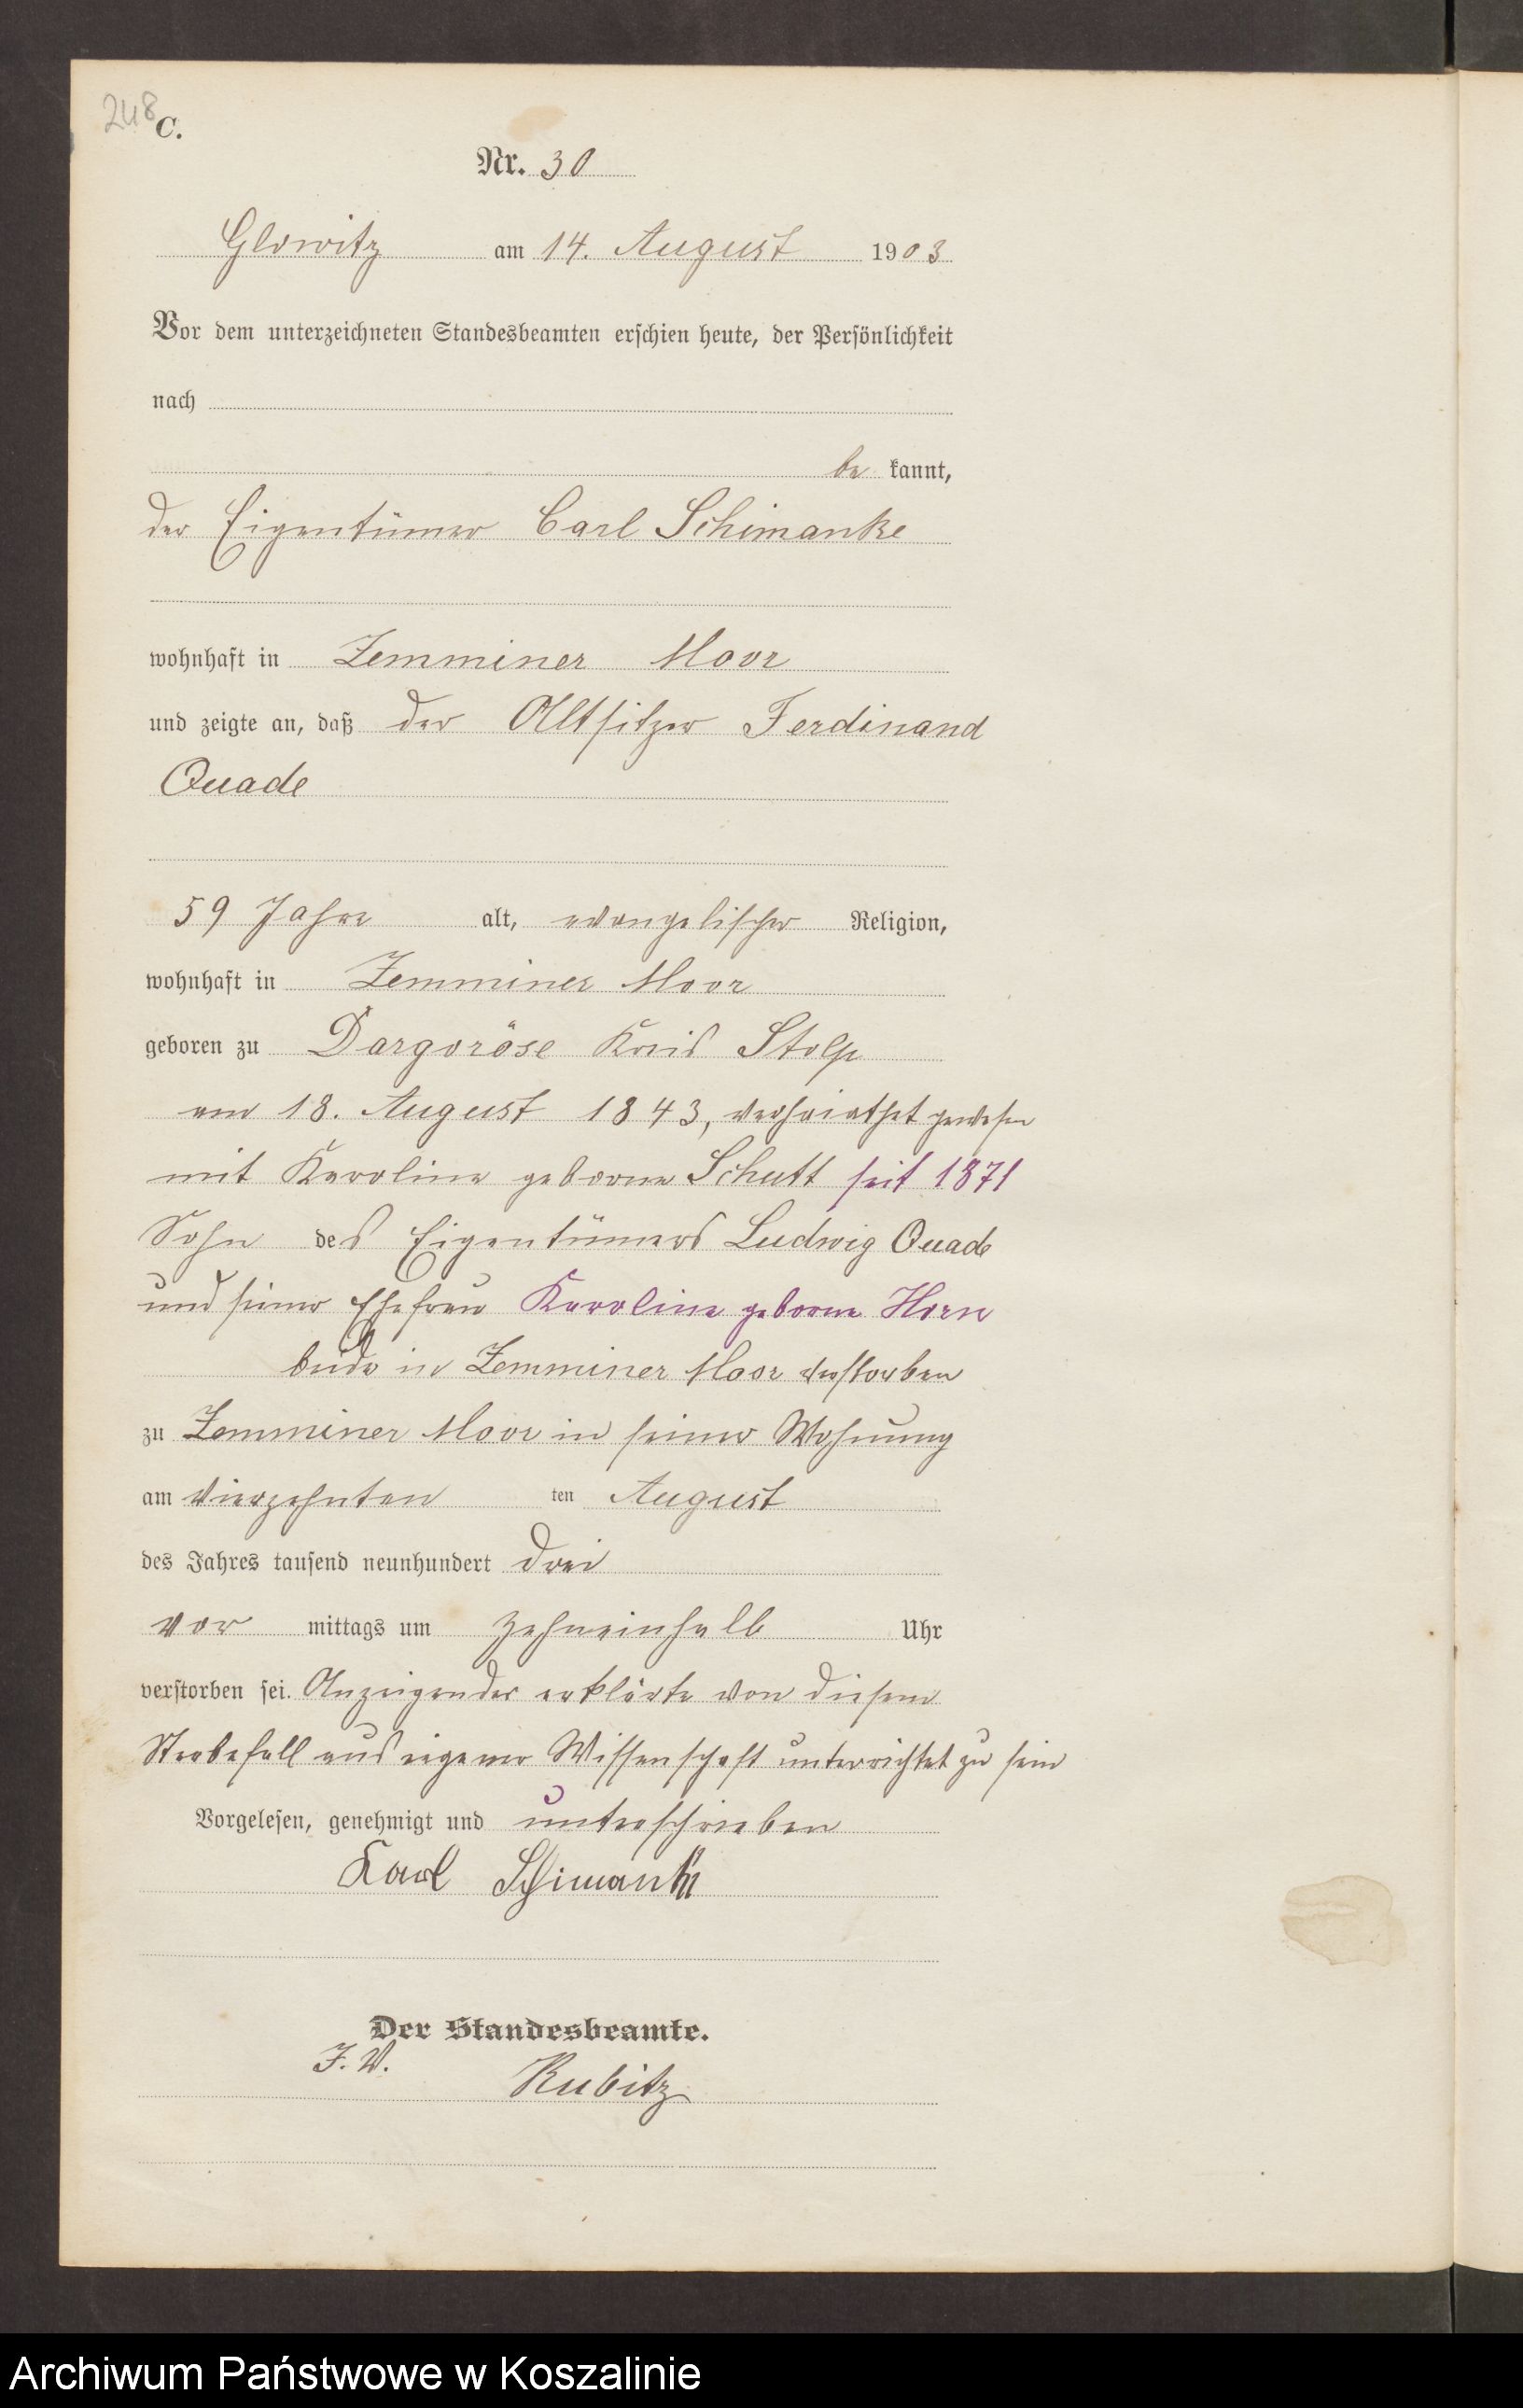 248
C.
Nr. 30
Glowitz am 14. August 1903
Vor dem unterzeichneten Standesbeamten erschien heute, der Persönlichkeit
nach
be kannt,
der Eigentümer Carl Schimanke
wohnhaft in Zemminer Moor
und zeigte an, daß der Altsitzer Ferdinand
Quade
59 Jahre alt, evangelischer Religion,
wohnhaft in Zemminer Moor
geboren zu Dargoröse Kreis Stolp
am 18. August 1843, verheirathet gewesen
mit Karoline geborene Schutt seit 1871
Sohn des Eigentümers Ludwig Quade
und seiner Ehefrau Karoline geborne Horn
beide in Zemminer Moor verstorben
zu Zemminer Moor in seiner Wohnung
am vierzehnten ten August
des Jahres tausend neunhundert drei
vor mittags um zehneinhalb Uhr
verstorben sei. Anzeigender erklärte von diesem
Sterbefall aus eigener Wissenschaft unterrichtet zu sein
Vorgelesen, genehmigt und unterschrieben
Karl Schimanke
Der Standesbeamte.
J. V.
Rubitz
Archiwum Państwowe w Koszalinie